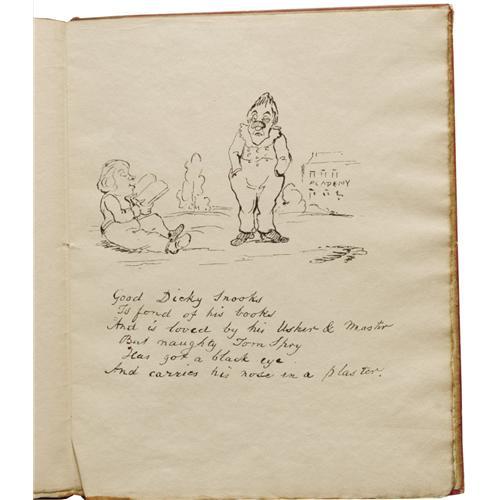 ACADEMY
Good Dicky Snooks
Is fond of his books
And is loved by his Usher & Master
But naughty Tom Spry
Has got a black eye
And carries his nose in a plaster.